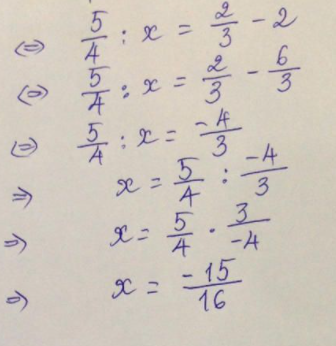 ⇔ 5/4 : x = 2/3 - 2
⇔ 5/4 : x = 2/3 - 6/3
⇔ 5/4 : x = -4/3
⇒ x = 5/4 : -4/3
⇒ x = 5/4 · 3/-4
⇒ x = -15/16